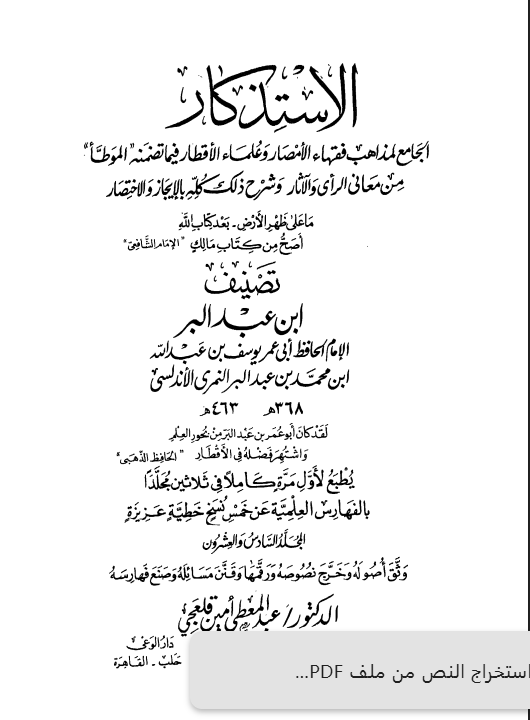 الاستذكار
الجامع لمذاهب فقهاء الأمصار وعلماء الأقطار فيما تضمنه "الموطأ"
من معاني الرأي والآثار وشرح ذلك كله بالإيجاز والاختصار
ما على ظهر الأرض ـ بعد كتاب الله
أصح من كتاب مالك "الإمام الشافعي"
تصنيف
ابن عبد البر
الإمام الحافظ أبي عمر يوسف بن عبد الله
ابن محمد بن عبد البر النمري الأندلسي
٣٦٨هـ ٤٦٣هـ
لقد كان أبو عمر بن عبد البر من بحور العلم
واشتهر فضله في الأقطار "الحافظ الذهبي"
يُطبع لأول مرة كاملاً في ثلاثين مجلدًا
بالفهارس العلمية عن خمس نسخ خطية عزيزة
المجلد السادس والعشرون
وثق أصوله وخرج نصوصه ورقمها وقنن مسائله وصنع فهارسه
الدكتور/عبد المعطي أمين قلعجي
دار الوعي
حلب ـ القاهرة
استخراج النص من ملف PDF...